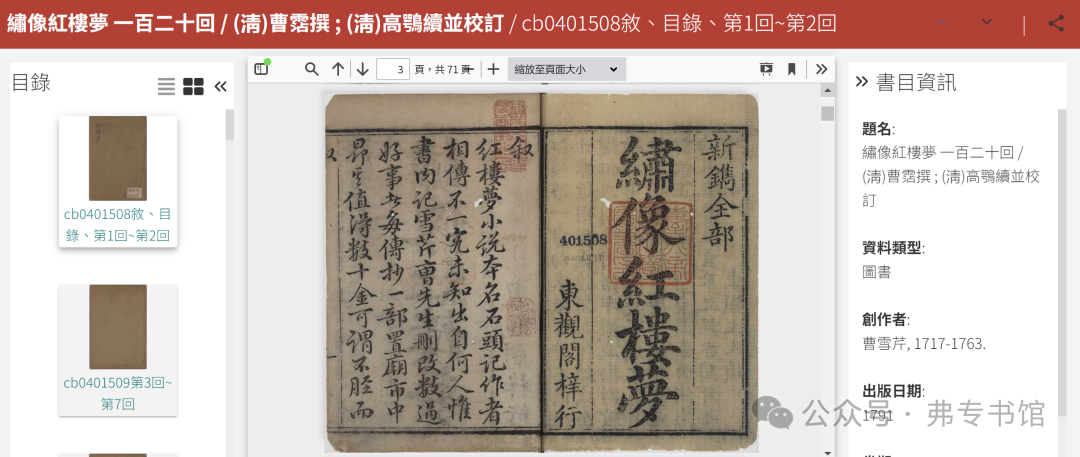 繡像紅樓夢 一百二十回 / (淸)曹霑撰 ; (淸)高鶚續並校訂 / cb0401508敘、目錄、第1回~第2回
目錄
cb0401508敘、目
錄、第1回~第2回
cb0401509第3回~
第7回
3 頁,共 71 頁
縮放至頁面大小
新鐫全部
繡像紅樓夢
401508
東觀閣梓行
敘
紅樓夢小说本名石頭記作者
相傳不一究未知出自何人惟
書内记雪芹曺先生刪改数過
好事者每傳抄一部置廟市中
昂其值得数十金可谓不胫而
書目資訊
題名:
繡像紅樓夢 一百二十回 /
(淸)曹霑撰 ; (淸)高鶚續並校
訂
資料類型:
圖書
創作者:
曹雪芹, 1717-1763.
出版日期:
1791
公众号 · 弗专书馆